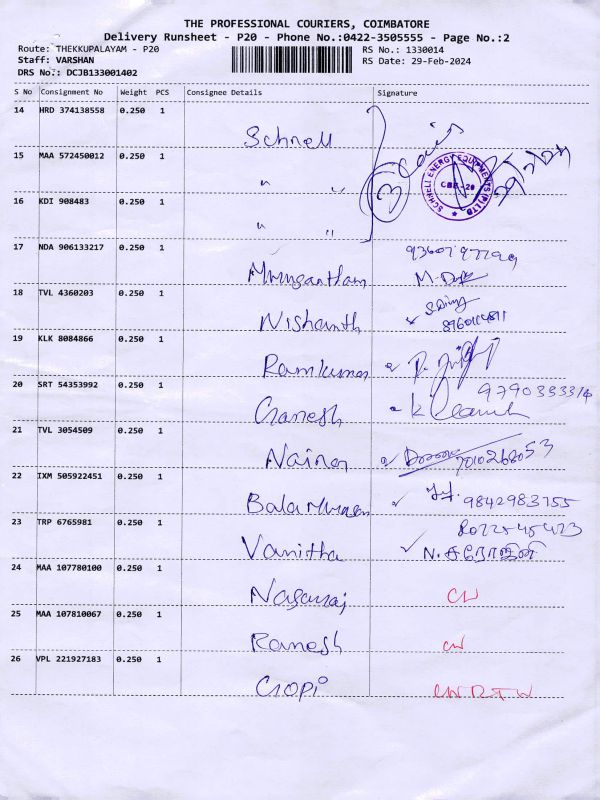 THE PROFESSIONAL COURIERS, COIMBATORE
Delivery Runsheet - P20 - Phone No.:0422-3505555 - Page No.:2
Route: THEKKUPALAYAM - P20 RS No.: 1330014
Staff: VARSHAN RS Date: 29-Feb-2024
DRS No.: DCJB133001402
S No Consignment No Weight PCS Consignee Details Signature
14 HRD 374138558 0.250 1 Schnell
15 MAA 572450012 0.250 1 " "
SCHNELL ENERGY EQUIPMENTS (P) LTD.
CBE-29
16 KDI 908483 0.250 1 " "
17 NDA 906133217 0.250 1 Murugantham
18 TVL 4360203 0.250 1 Nishanth
19 KLK 8084866 0.250 1 Ramkumar
20 SRT 54353992 0.250 1 Ganesh 9790333314
21 TVL 3054509 0.250 1 Nainar 7010268053
22 IXM 505922451 0.250 1 Bala Murugan 9842983755
23 TRP 6765981 0.250 1 Vanitha N. சரோஜினி
24 MAA 107780100 0.250 1 Nagaraj CW
25 MAA 107810067 0.250 1 Ramesh CW
26 VPL 221927183 0.250 1 Gopi